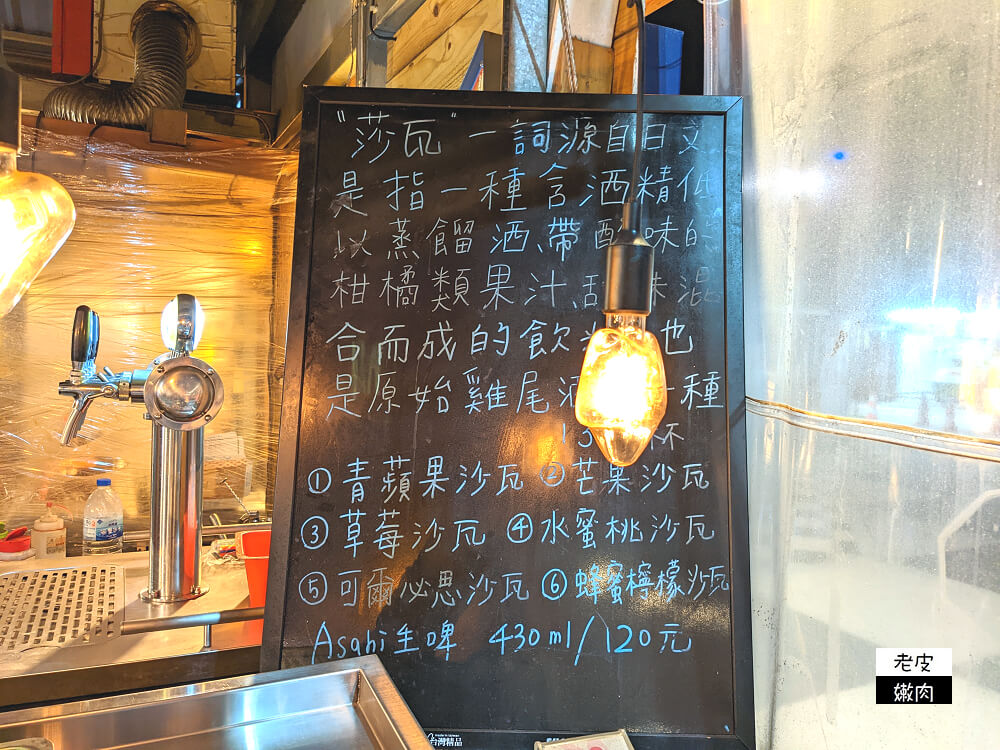 "莎瓦"一詞源自日文
是指一種含酒精低
以蒸餾酒、帶酸味的
柑橘類果汁、甜味混
合而成的飲 也
是原始雞尾酒 一種
杯
①青蘋果沙瓦 ②芒果沙瓦
③草莓沙瓦 ④水蜜桃沙瓦
⑤可爾必思沙瓦 ⑥蜂蜜檸檬沙瓦
Asahi生啤 430ml/120元
台灣精品
老皮
嫩肉